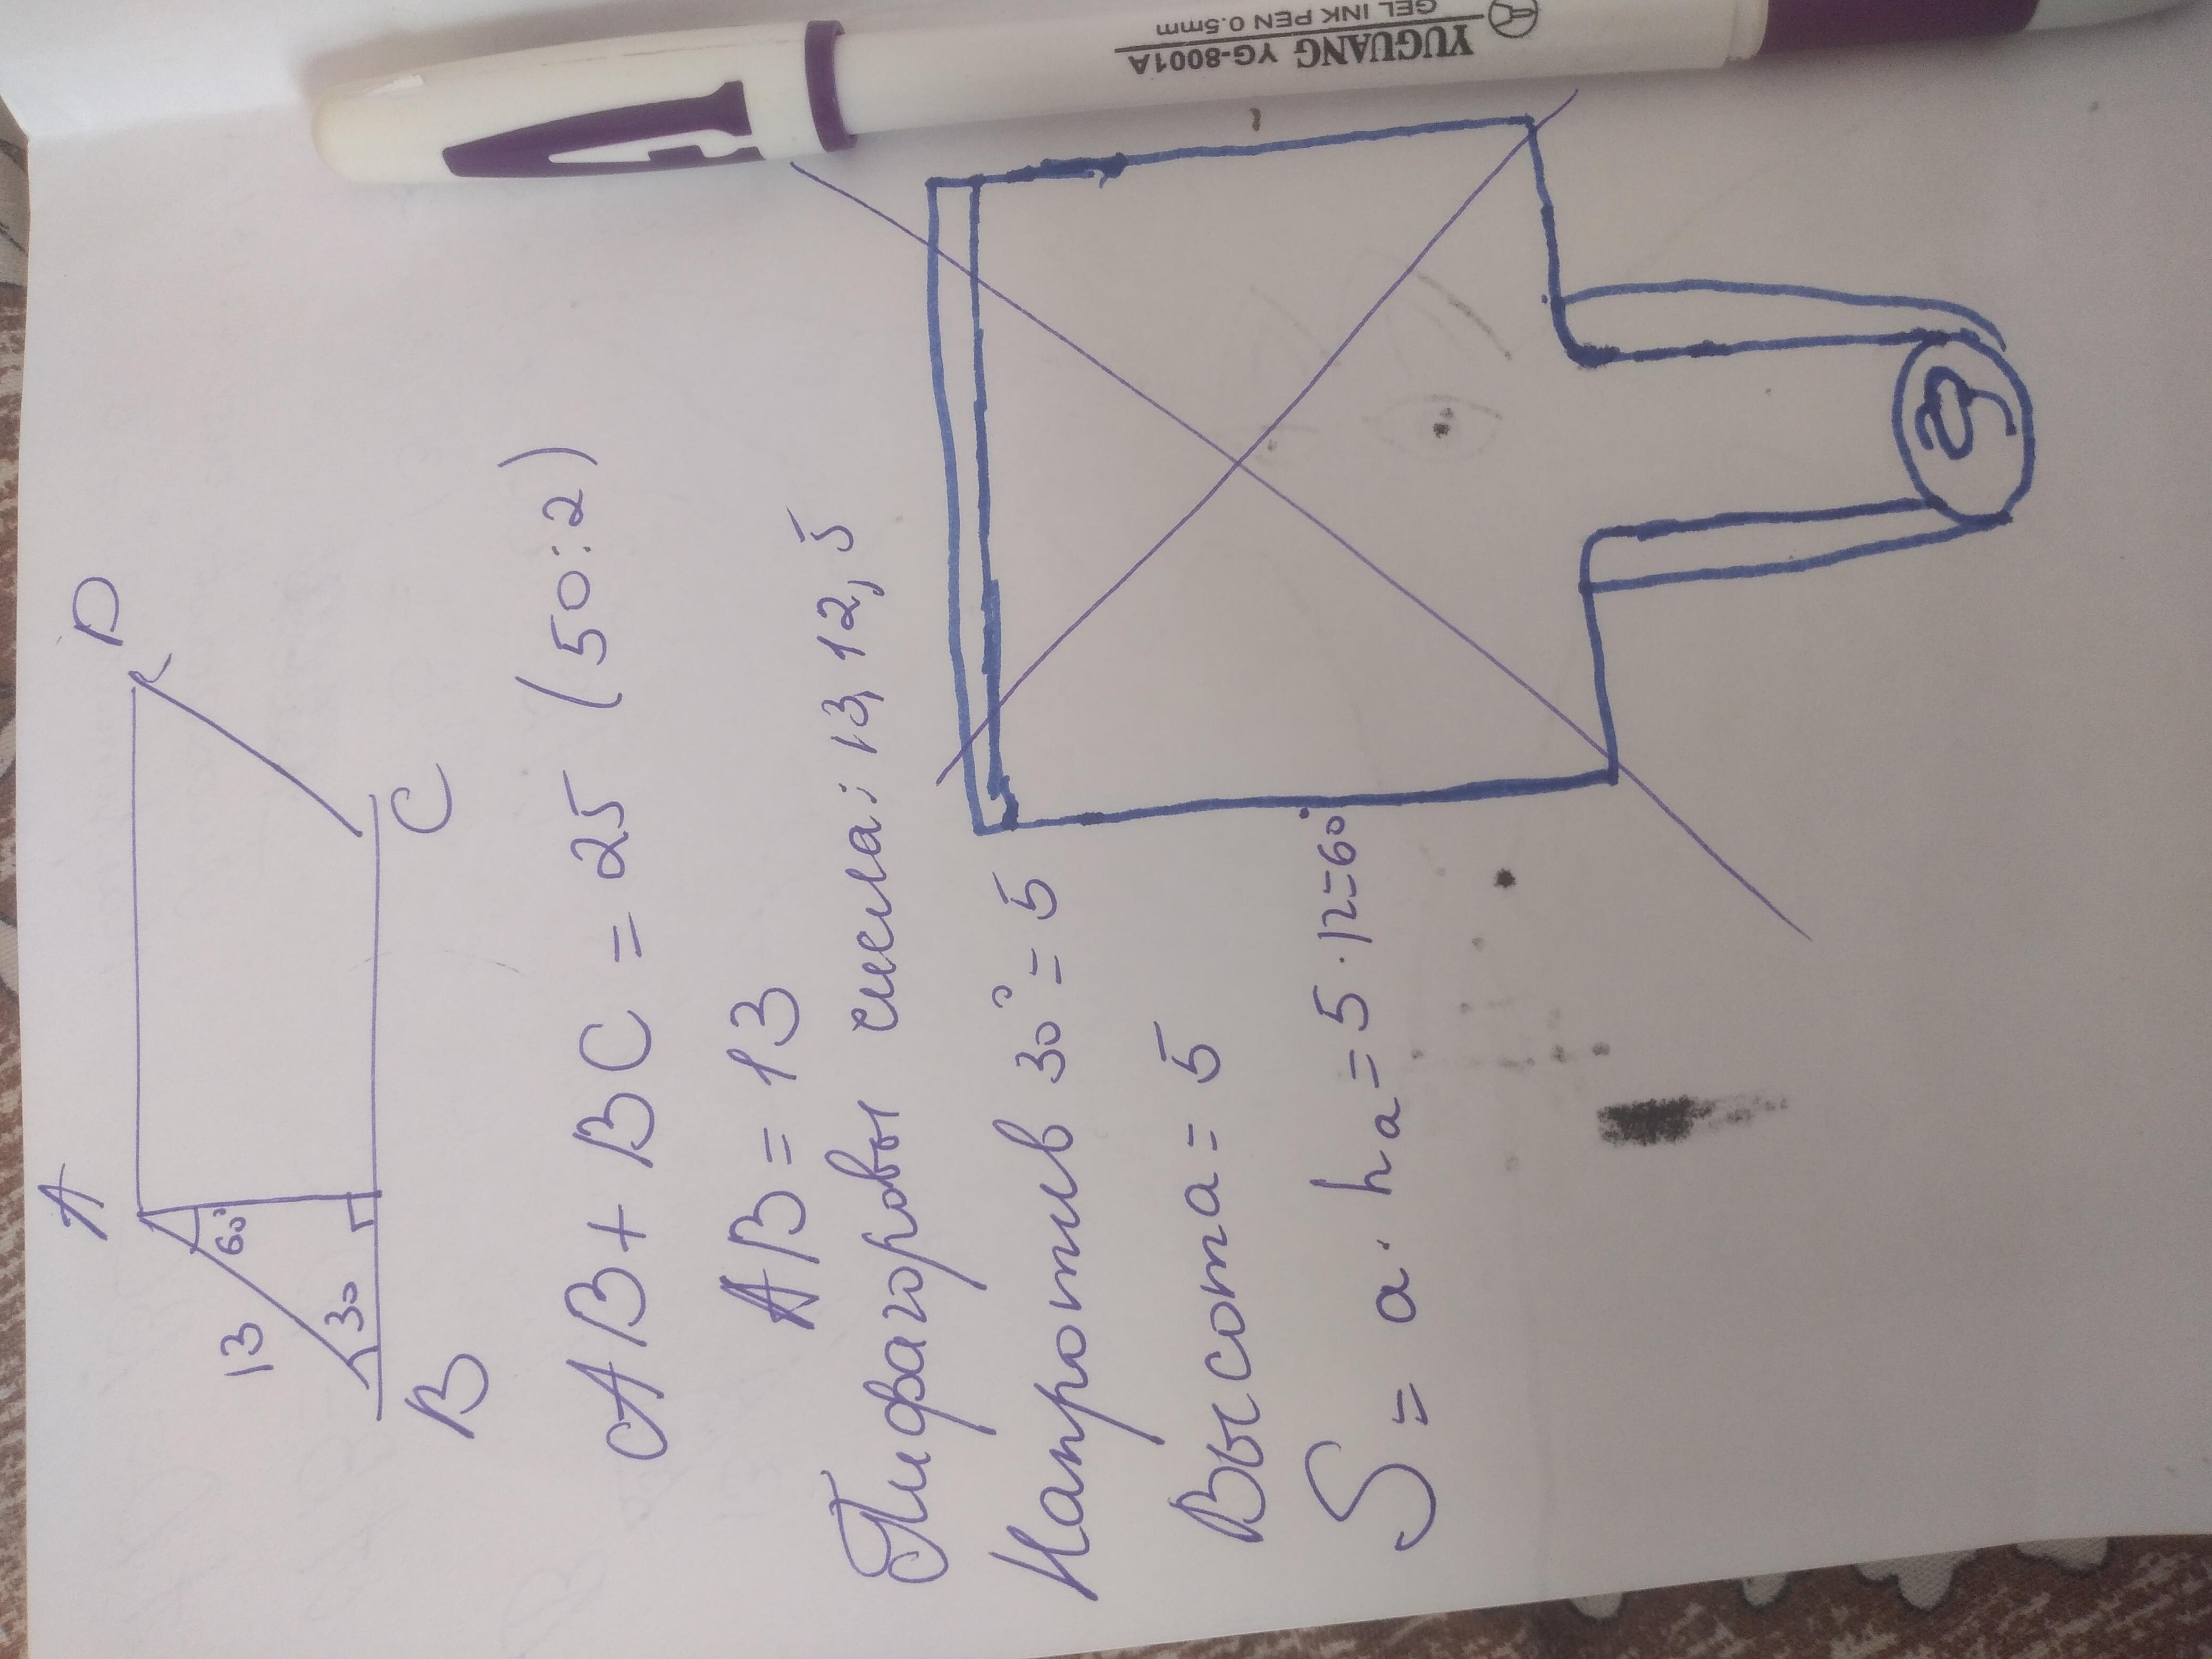 A D
60°
13
30
B C
AB + BC = 25 (50:2)
AB = 13
Пифагоровы числа: 13, 12, 5
Напротив 30° = 5
Высота = 5
S = a · ha = 5 · 12 = 60
YUGUANG YG-8001A
GEL INK PEN 0.5mm